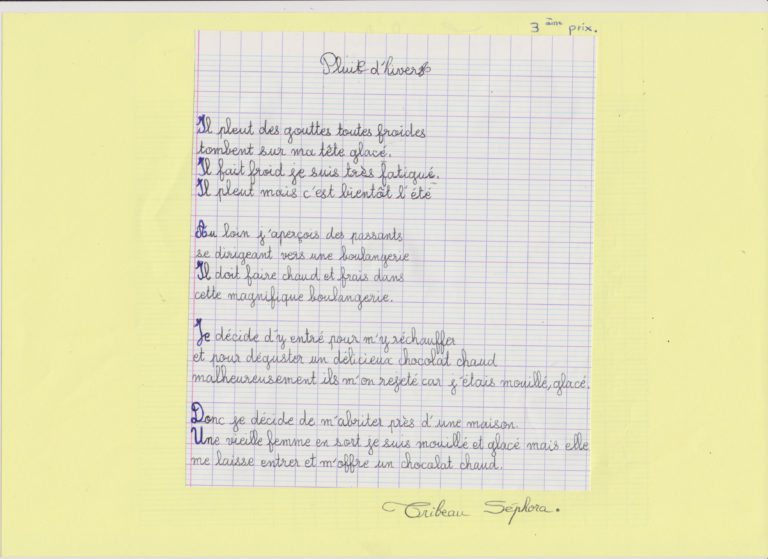 3 ème prix.
Pluie d'hivers
Il pleut des gouttes toutes froides
tombent sur ma tête glacé.
Il fait froid je suis très fatigué.
Il pleut mais c'est bientôt l'été
Au loin j'aperçois des passants
se dirigeant vers une boulangerie
Il doit faire chaud et frais dans
cette magnifique boulangerie.
Je décide d'y entré pour m'y réchauffer
et pour déguster un délicieux chocolat chaud
malheureusement ils m'on rejeté car j'étais mouillé, glacé.
Donc je décide de m'abriter près d'une maison.
Une vieille femme en sort je suis mouillé et glacé mais elle
me laisse entrer et m'offre un chocalat chaud.
Séphora.